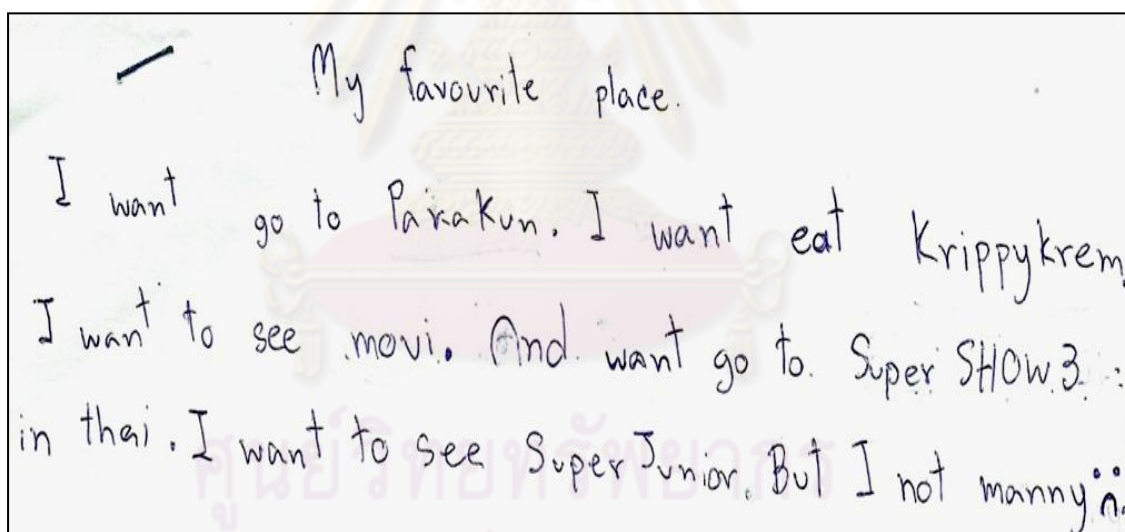 My favourite place.
I want go to Parakun. I want eat Krippykrem.
I want to see movi. And want go to Super SHOW 3
in thai. I want to see Super Junior. But I not manny
ศูนย์วิทยทรัพยากร